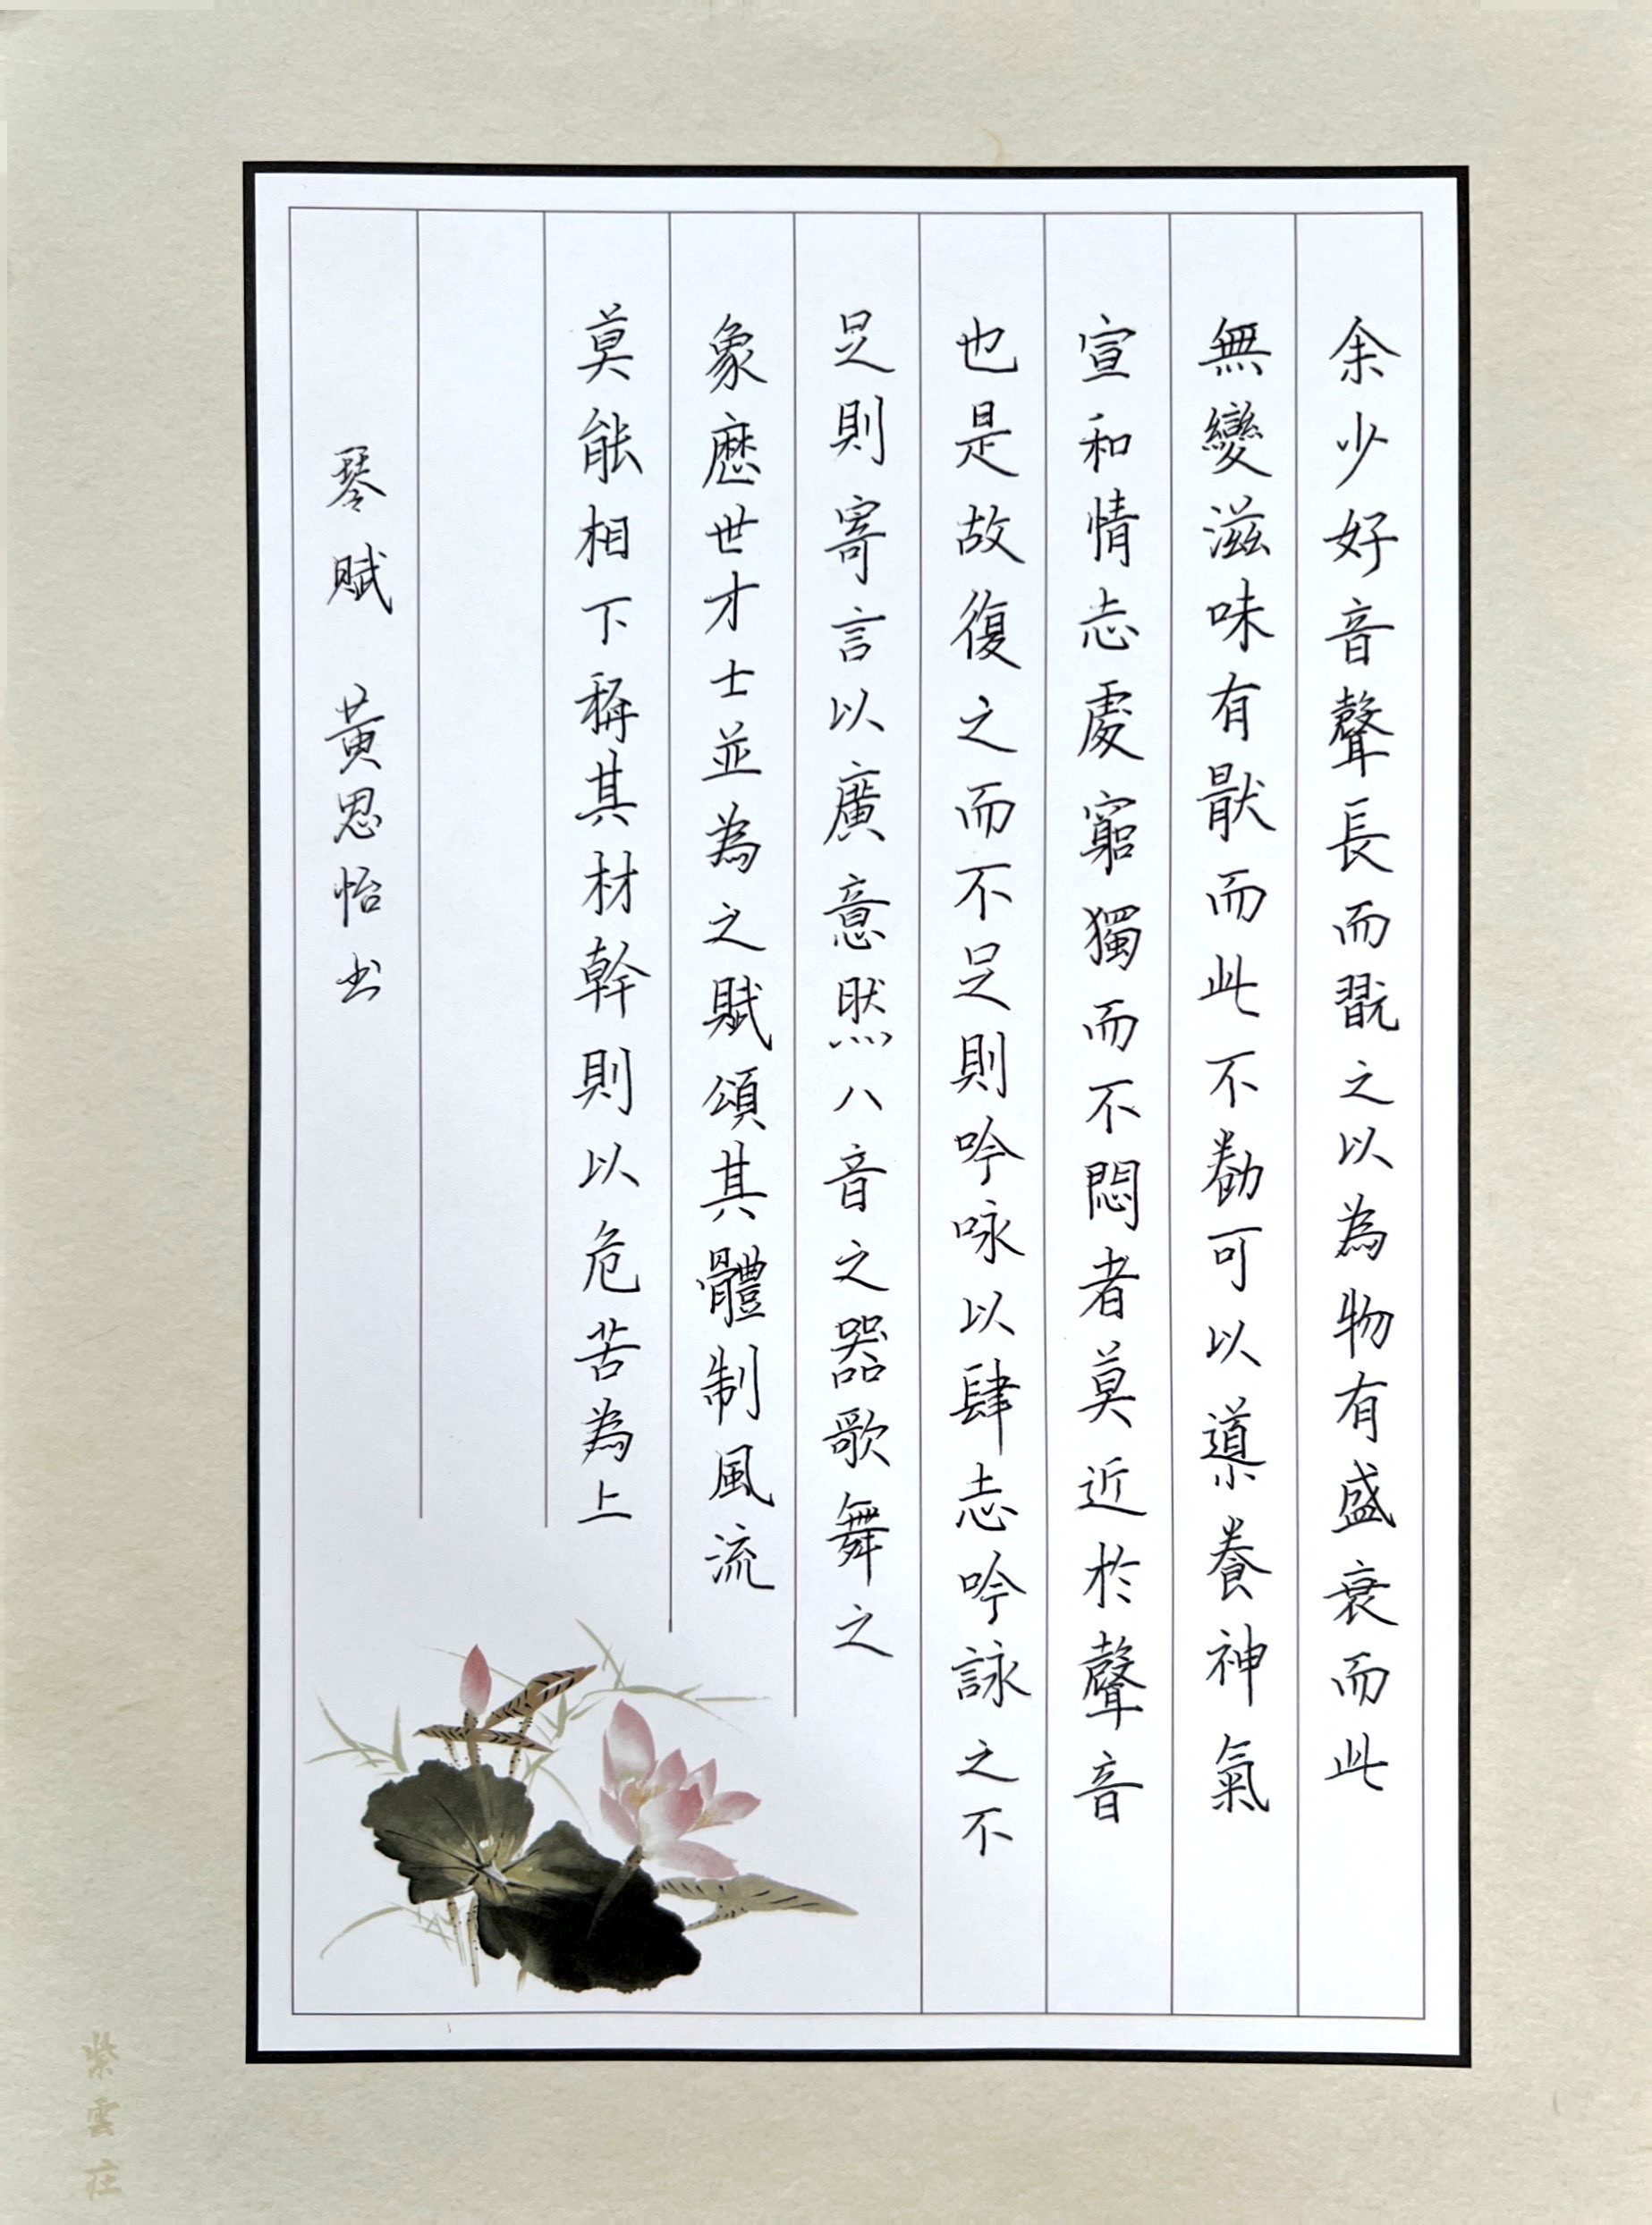 余少好音聲長而翫之以為物有盛衰而此
無變滋味有猒而此不勌可以導養神氣
宣和情志處窮獨而不悶者莫近於聲音
也是故復之而不足則吟咏以肆志吟詠之不
足則寄言以廣意然八音之器歌舞之
象歷世才士並為之賦頌其體制風流
莫能相下稱其材幹則以危苦為上
琴賦 黃思怡书
紫雲莊